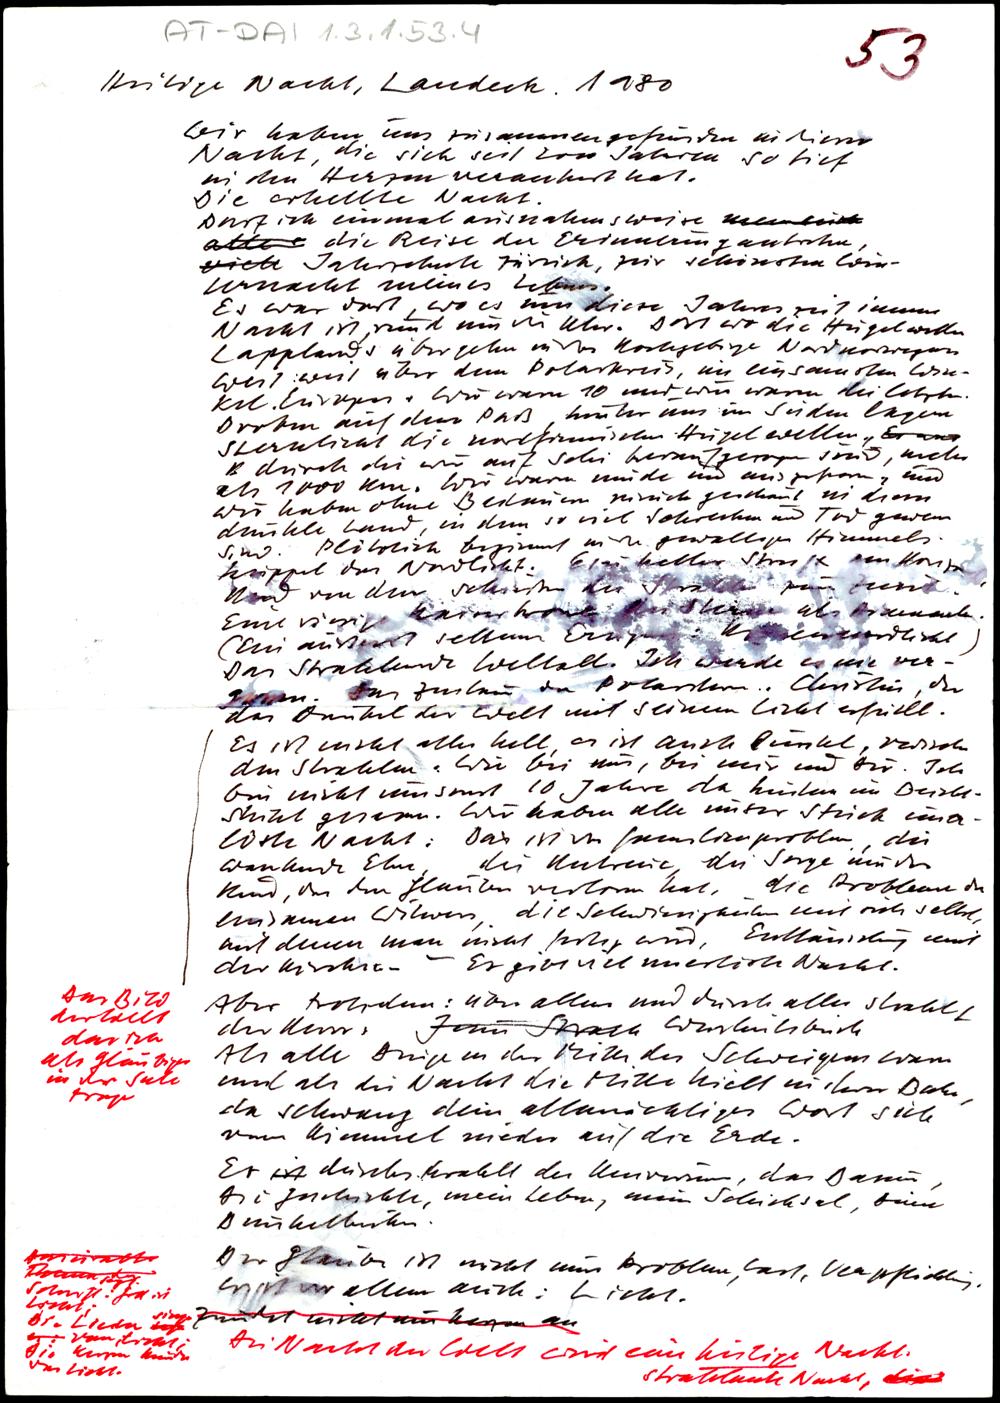 AT-DAI 1.3.1.53.4
53
Heilige Nacht, Landeck. 1980
Wir haben uns zusammengefunden in dieser
Nacht, die sich seit 2000 Jahren so tief
in den Herzen verankert hat.
Die erhellte Nacht.
Darf ich einmal ausnahmsweise
alles die Reise der Erinnerung antreten,
viele Jahrzehnte zurück, zur schönsten Win-
ternacht meines Lebens.
Es war dort, wo es um diese Jahreszeit immer
Nacht ist, rund um die Uhr. Dort wo die Hügelwellen
Lapplands übergehn in das Hochgebirge Nordnorwegens
weit weit über dem Polarkreis, im einsamsten Win-
kel Europas. Wir waren 10 und wir waren die letzten.
Droben auf dem Paß, hinter uns im Süden lagen
Sternlicht die nordfinnischen Hügelwellen,
durch die wir auf Schi heraufgezogen sind, mehr
als 1000 Km. Wir waren müde und ausgefroren, und
wir haben ohne Bedauern zurück geschaut in dieses
dunkle Land, in dem so viel Schrecken und Tod gewesen
sind. Plötzlich beginnt in der gewaltigen Himmels-
kuppel das Nordlicht. Ein heller Streif am Horizont
und von dem schießen die Strahlen zum Zenit.
Eine riesige Kaiserkrone die Sterne als Diamanten.
(Ein äußerst seltenes Ereignis: Kronennordlicht)
Das Strahlende Weltall. Ich werde es nie ver-
gessen. Das Zeltlager der Polarstern.. Christus, der
das Dunkel der Welt mit seinem Licht erfüllt.
Es ist nicht alles hell, es ist auch Dunkel, zwischen
den Strahlen. Wie bei uns, bei mir und Dir. Ich
bin nicht umsonst 10 Jahre da hinten im Beicht-
stuhl gesessen. Wir haben alle unser Stück uner-
löste Nacht: Das ist das Familienproblem, die
wankende Ehe, die Untreue, die Sorge um das
Kind, das den Glauben verloren hat, die Probleme der
einsamen Witwen, die Schwierigkeiten mit sich selbst,
mit denen man nicht fertig wird, Enttäuschung mit
der Kirche - - Es gibt viel unerlöste Nacht.
Aber trotzdem: über allem und durch alles strahlt
der Herr: Weisheitsbuch
Als alle Dinge in der Mitte des Schweigens waren
und als die Nacht die Mitte hielt in ihrer Bahn,
da schwang dein allmächtiges Wort sich
vom Himmel nieder auf die Erde.
Er ist durchstrahlt das Universum, das Dasein,
die Geschichte, mein Leben, mein Schicksal, deine
Dunkelheiten.
Der Glaube ist nicht nur Problem, Last, Verpflichtung.
Er ist vor allem auch: Licht.
Zündet nicht nur Kerzen an
Die Nacht der Welt wird eine heilige Nacht.
strahlende Nacht, die
Das Bild
der Welt
das ich
als gläubiger
in der Seele
trage
Schrift: Gott ist
Licht;
Die Lieder singen
vom Licht;
Die Kerzen künden
das Licht.